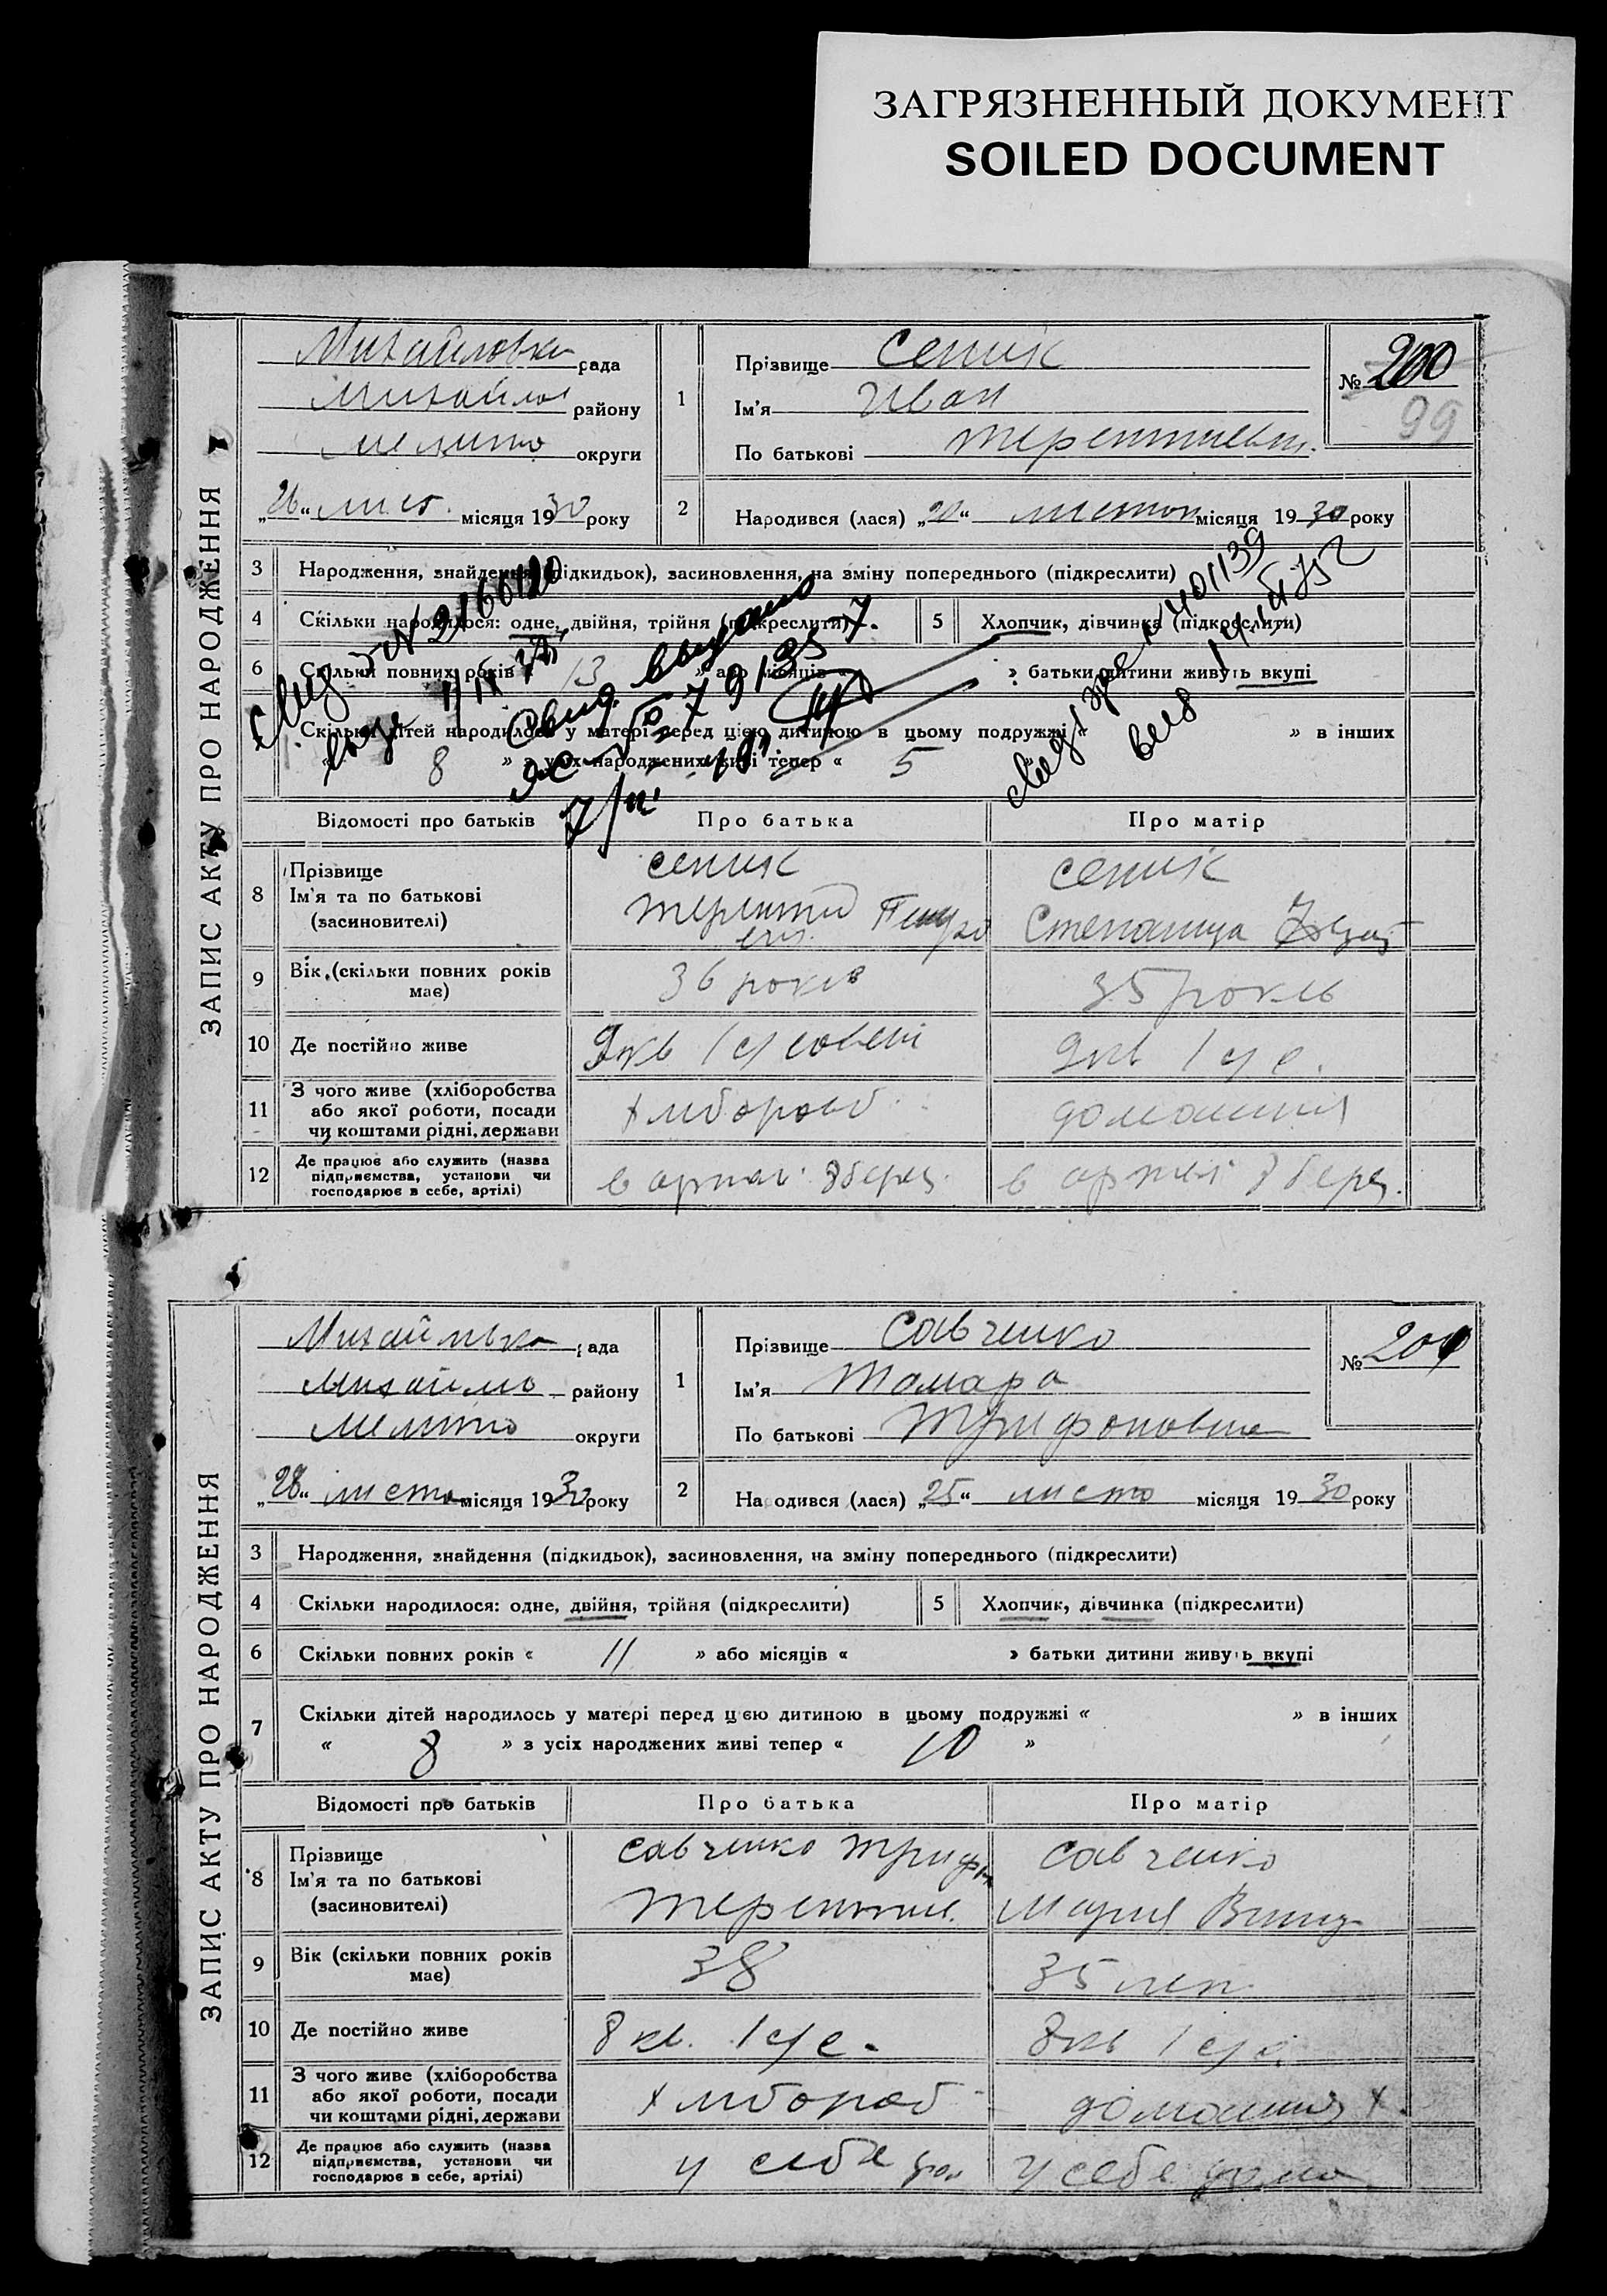 ЗАГРЯЗНЕННЫЙ ДОКУМЕНТ
SOILED DOCUMENT
ЗАПИС АКТУ ПРО НАРОДЖЕННЯ
Михайловка рада
Михайлов району
Мелито округи
„26“ лист. місяця 1930 року
1
Прізвище Сеник
Ім'я Иван
По батькові Терентиевич.
№ 200
99
2
Народився (лася) „20“ листоп місяця 1930 року
3 Народження, знайдення (підкидьок), засиновлення, на зміну попереднього (підкреслити)
4 Скільки народилося: одне, двійня, трійня (підкреслити) 5 Хлопчик, дівчинка (підкреслити)
6 Скільки повних років « 13 » або місяців « » батьки дитини живуть вкупі
7 Скільки дітей народилось у матері перед цією дитиною в цьому подружжі « » в інших
« 8 » з усіх народжених живі тепер « 5
Відомості про батьків Про батька Про матір
8 Прізвище Ім'я та по батькові (засновителі)
сеник
сеник
Степанида
9 Вік (скільки повних років має) 36 років 35 років
10 Де постійно живе 9 кв 1 с/совет 9 кв 1 с/с.
11 З чого живе (хліборобства або якої роботи, посади чи коштами рідні, держави хлібороб домашня
12 Де працює або служить (назва підприємства, установи чи господарює в себе, артілі) в артел 8 берез. в артел 8 берез.
ЗАПИС АКТУ ПРО НАРОДЖЕННЯ
Михайлівка рада
Михайло району
Мелито округи
„28“ листо місяця 1930 року
1
Прізвище Савченко
Ім'я Тамара
По батькові Трифоновна
№ 201
2
Народився (лася) „25“ листо місяця 1930 року
3 Народження, знайдення (підкидьок), засиновлення, на зміну попереднього (підкреслити)
4 Скільки народилося: одне, двійня, трійня (підкреслити) 5 Хлопчик, дівчинка (підкреслити)
6 Скільки повних років « 11 » або місяців « » батьки дитини живуть вкупі
7 Скільки дітей народилось у матері перед цією дитиною в цьому подружжі « » в інших
« 8 » з усіх народжених живі тепер « 10 »
Відомості про батьків Про батька Про матір
8 Прізвище Ім'я та по батькові (засиновителі)
Савченко Трифон Савченко
Терентии. Мария
9 Вік (скільки повних років має) 38 35 лет
10 Де постійно живе 8 кв. 1 с/с. 8 кв 1 с/с.
11 З чого живе (хліборобства або якої роботи, посади чи коштами рідні, держави хлібороб домашня х.
12 Де працює або служить (назва підприємства, установи чи господарює в себе, артілі) у себе дом у себе дома